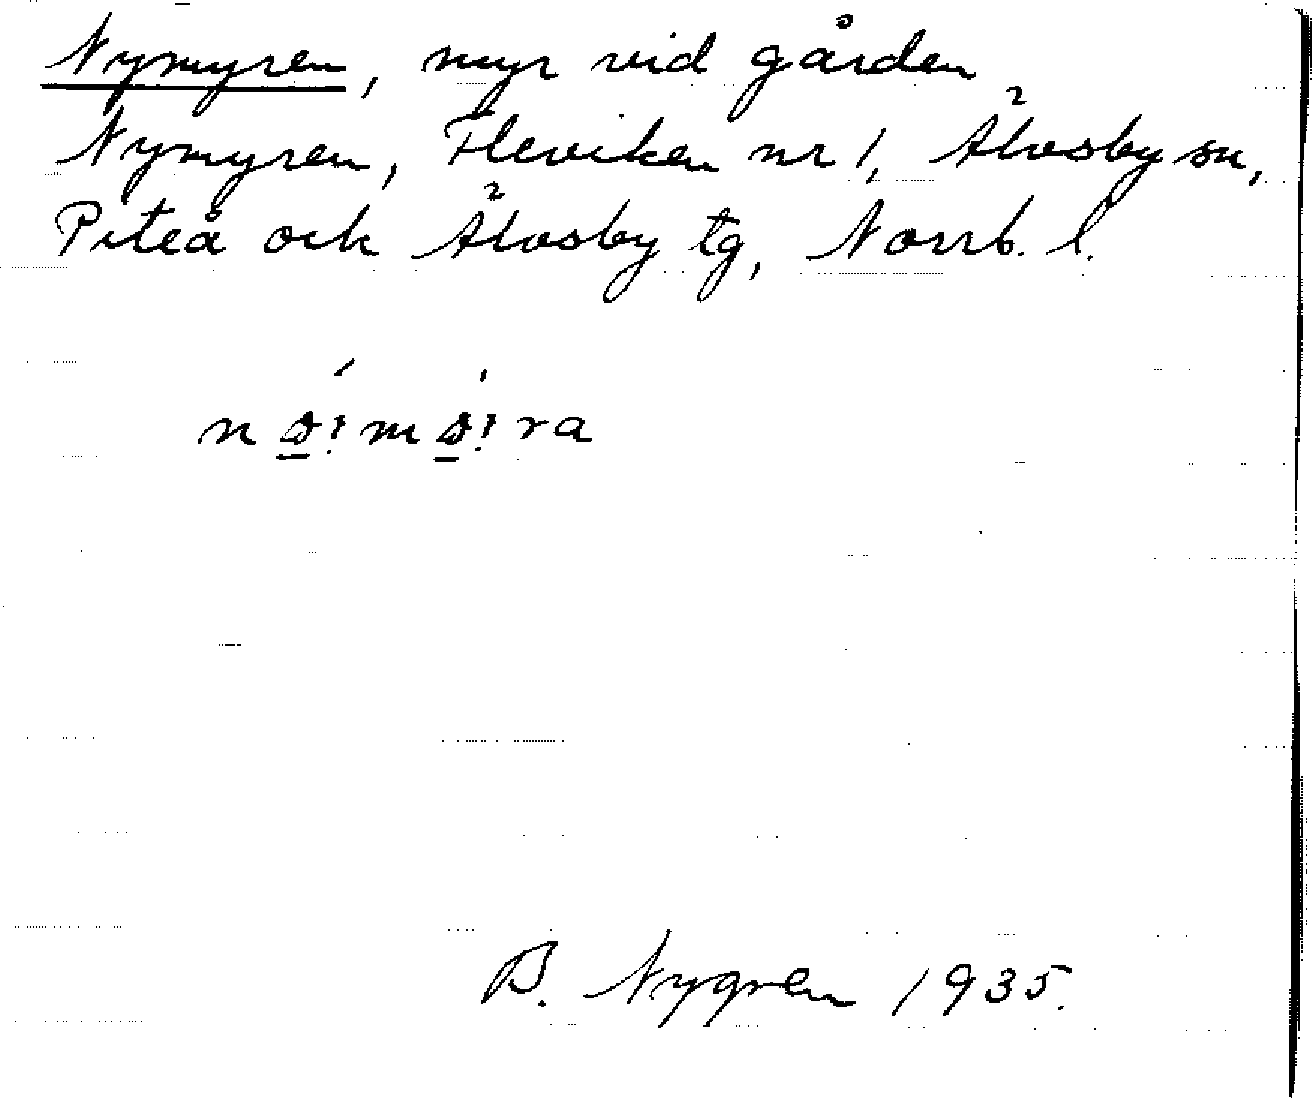 Nymyren, myr vid gården
Nymyren, Fleviken nr 1, Älvsby sn,
Piteå och Älvsby tg, Norrb. l.
B. Nygren 1935.